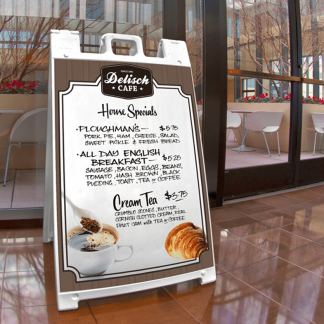 Delisch
CAFE
House Specials
- PLOUGHMAN'S - $5.75
PORK PIE, HAM, CHEESE, SALAD,
SWEET PICKLE & FRESH BREAD
- ALL DAY ENGLISH
BREAKFAST - $5.25
SAUSAGE, BACON, EGGS, BEANS,
TOMATO, HASH BROWN, BLACK
PUDDING, TOAST, TEA or COFFEE
Cream Tea $3.75
CRUMBLY SCONES, BUTTER,
CORNISH CLOTTED CREAM, REAL
FRUIT JAM with TEA or COFFEE